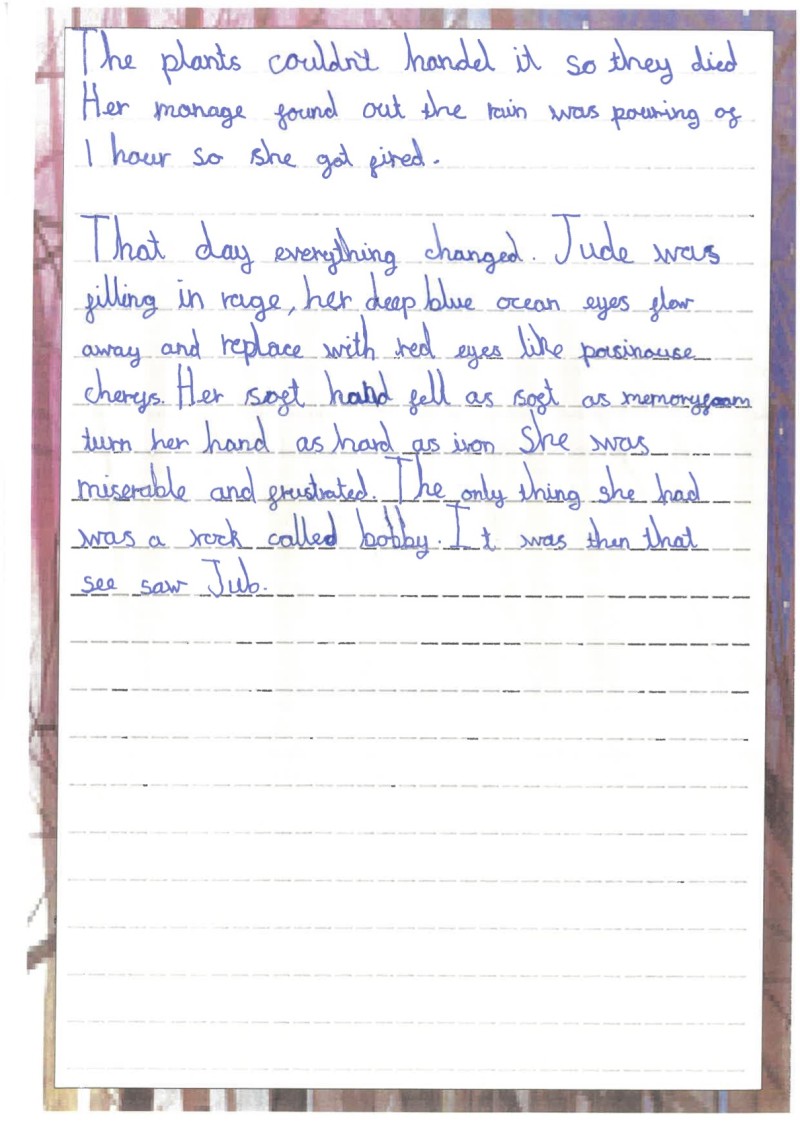 The plants couldn't handel it so they died
Her manage found out the rain was pouring of
1 hour so she got fired.
That day everything changed. Jude was
filling in rage, her deep blue ocean eyes flow
away and replace with red eyes like poisinouse
cherys. Her soft hand fell as soft as memoryfoam
turn her hand as hard as iron She was
miserable and frustrated. The only thing she had
was a rock called bobby. It was then that
see saw Jub.